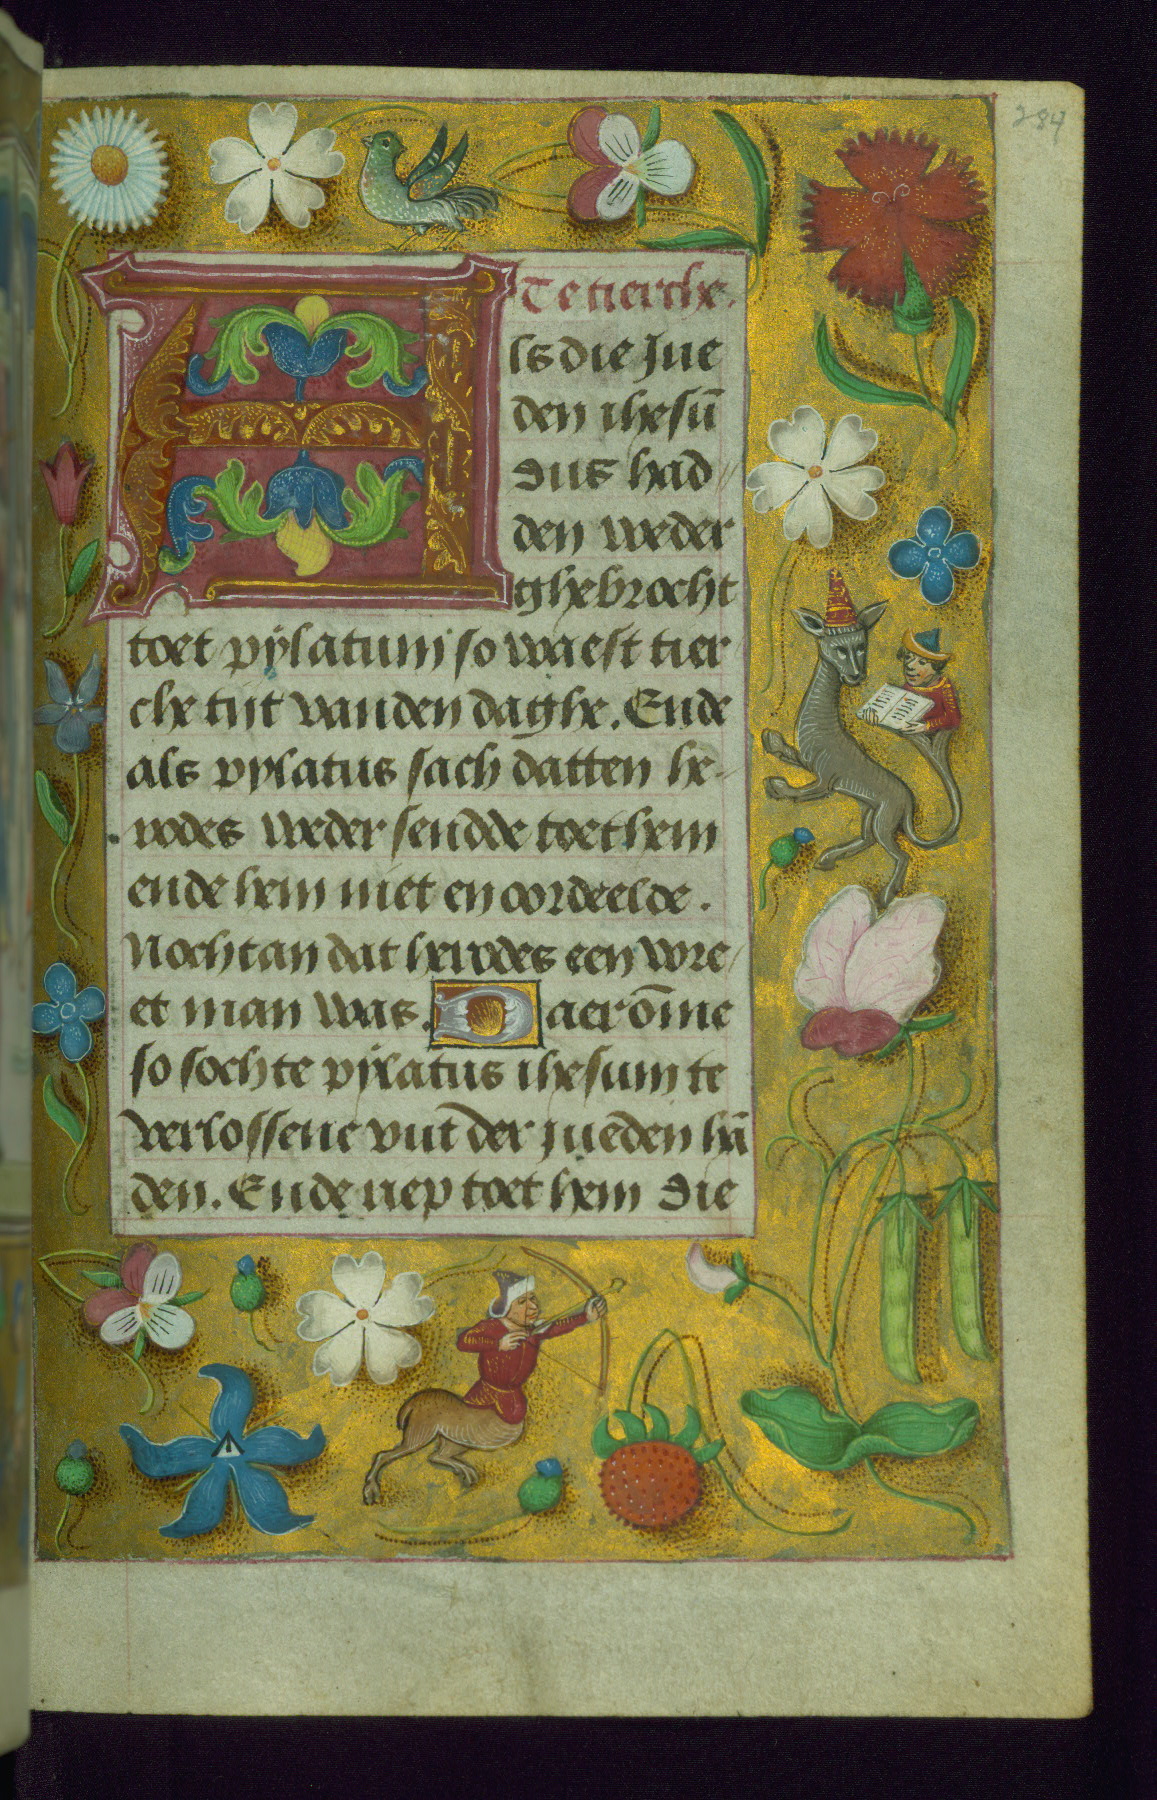 284
Te tierche.
Als die Jue
den ihesū
dus had
den weder
ghebrocht
toet pÿlatum so waest tier
che tijt van den daghe. Ende
als pylatus sach datten he
rodes weder sendde toet hem
ende hem niet en oordeelde.
Nochtan dat herodes een wre
et man was. Daerōme
so sochte pÿlatus ihesum te
verlossene vut der jueden hā
den. Ende riep toet hem die